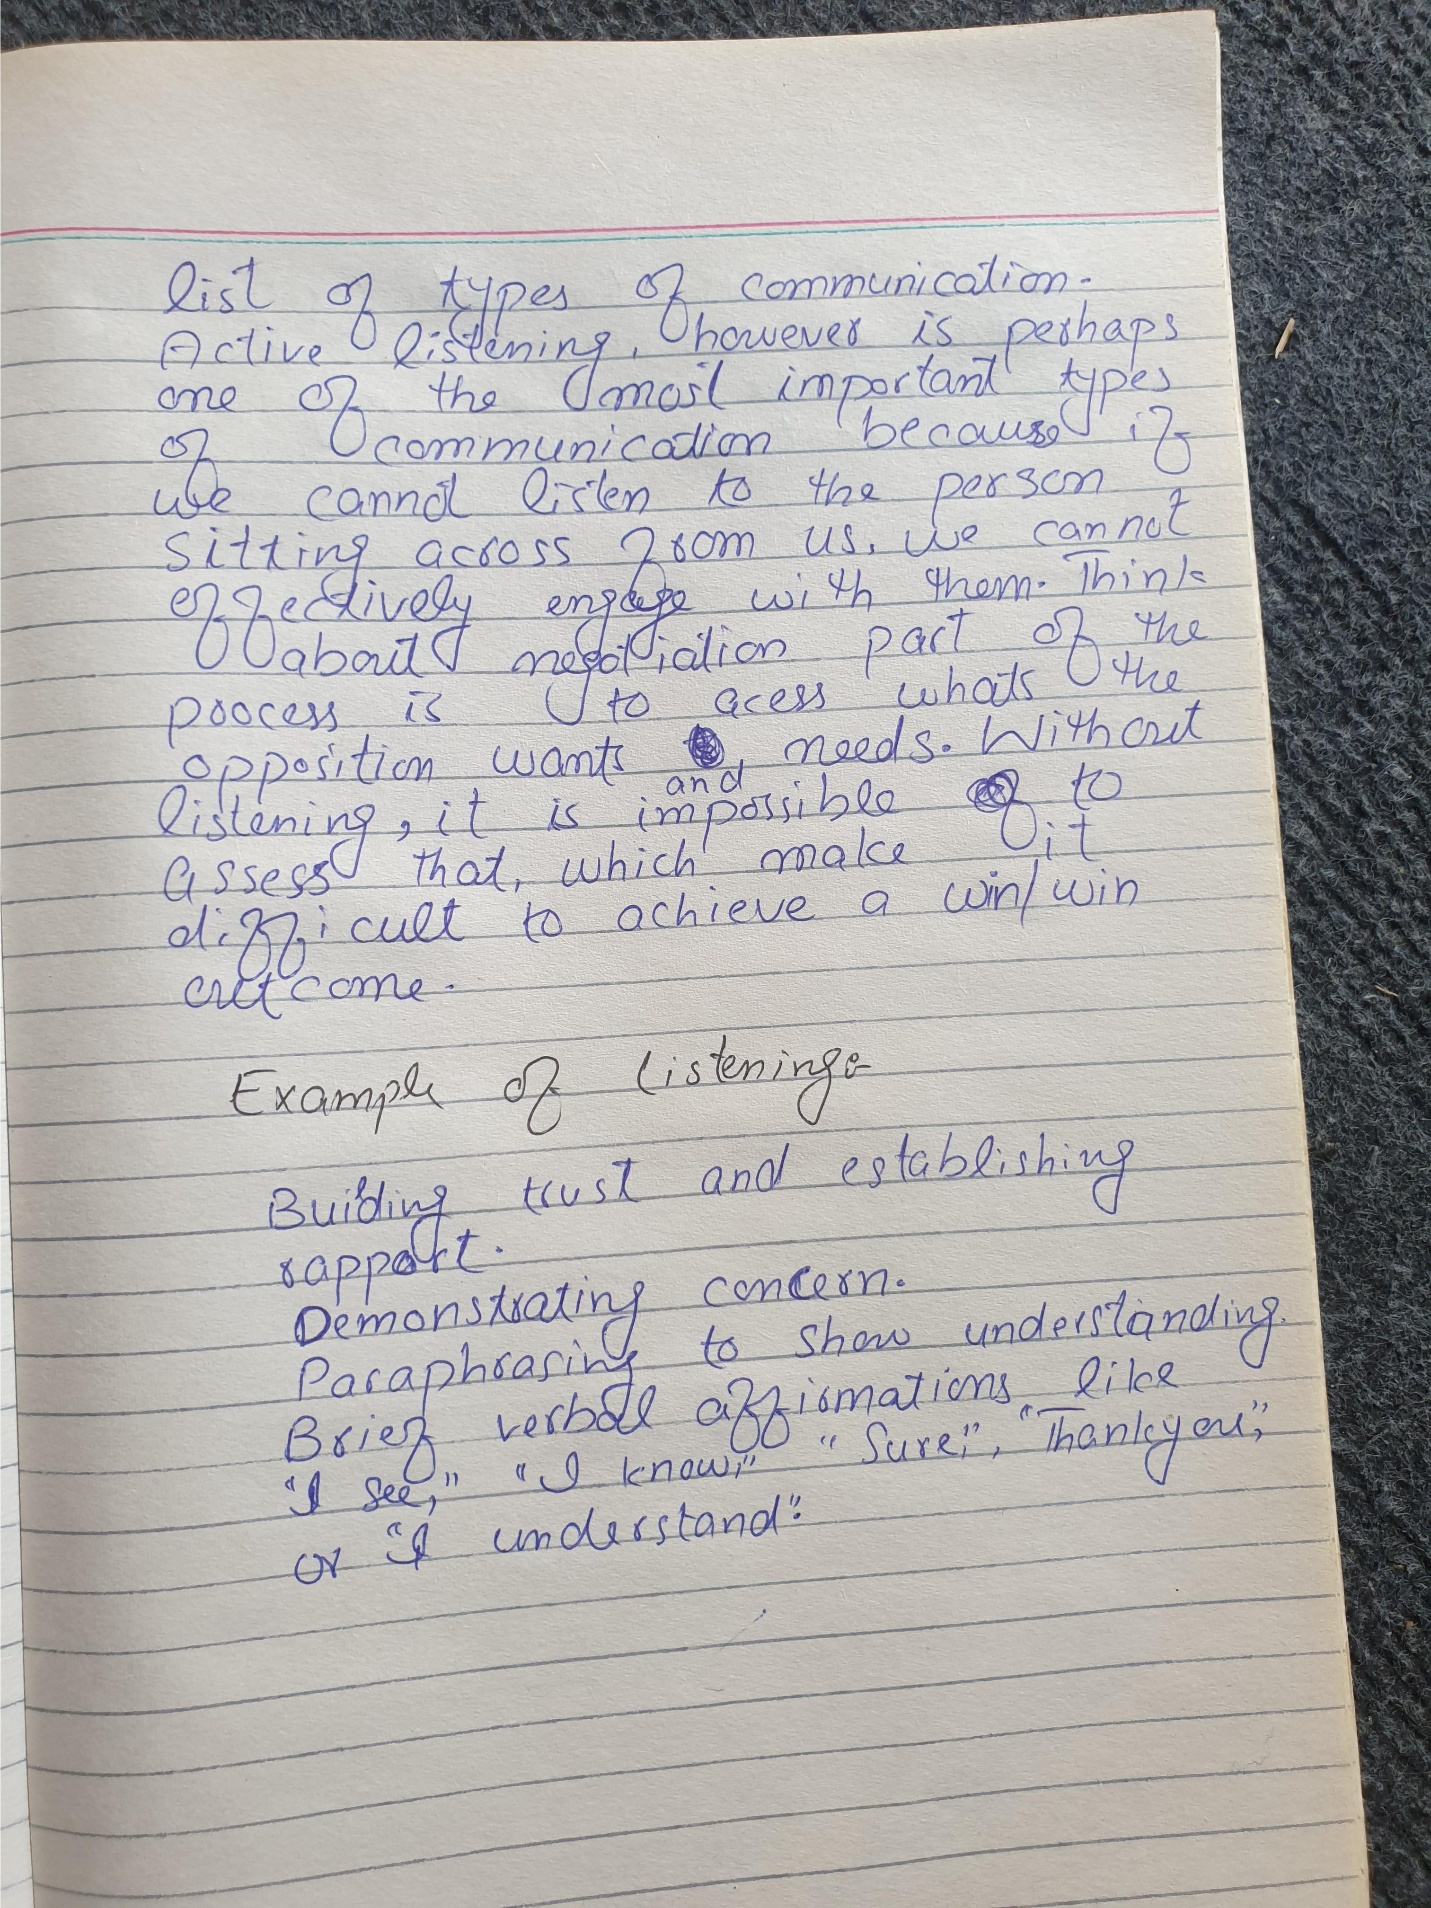 list of types of communication.
Active listening, however is perhaps
one of the most important types
of communication because if
we cannot listen to the person
sitting across from us, we cannot
effectively engage with them. Think
about negotiation part of the
process is to acess whats the
opposition wants needs. Without
and
listening, it is impossible to
assess that, which make it
difficult to achieve a win/win
outcome.
Example of listening:-
Building trust and establishing
rapport.
Demonstrating concern.
Paraphrasing to show understanding.
Brief verbal affirmations like
"I see," "I know," "Sure," "Thankyou",
or "I understand".